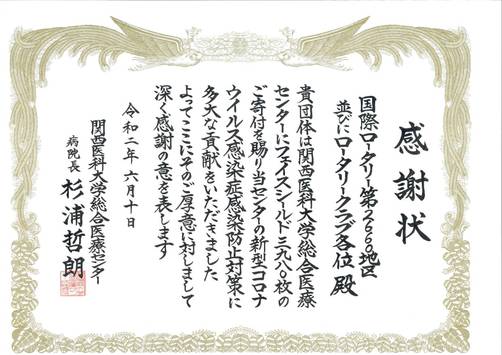 感謝状
国際ロータリー第2660地区
並びにロータリークラブ各位殿
貴団体は関西医科大学総合医療
センターにフェイスシールド三九八〇枚の
ご寄付を賜り当センターの新型コロナ
ウイルス感染症感染防止対策に
多大な貢献をいただきました
よってここにそのご厚意に対しまして
深く感謝の意を表します
令和二年六月十日
関西医科大学総合医療センター
病院長 杉浦哲朗